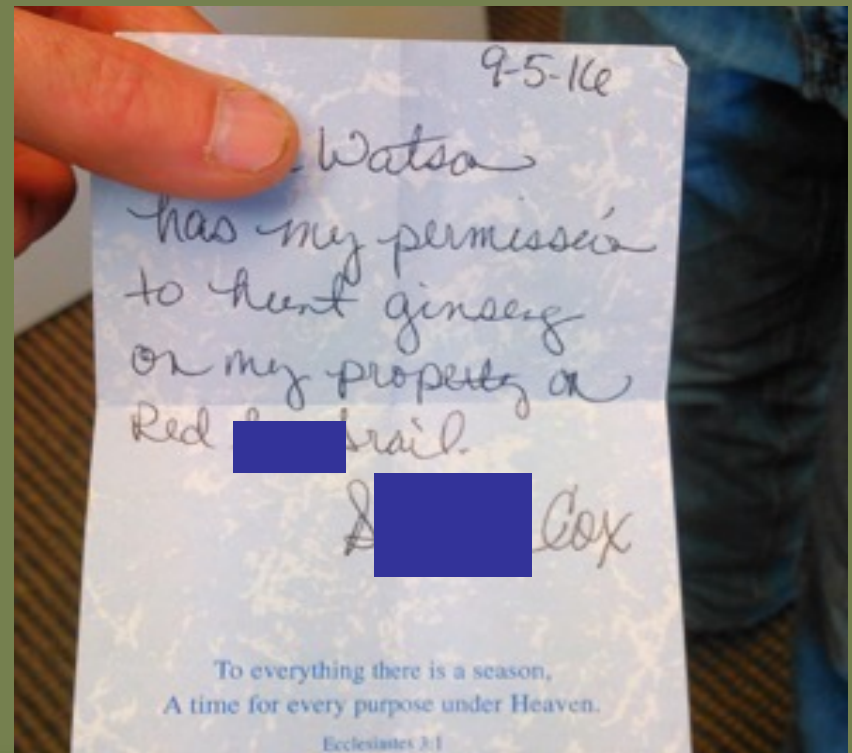 9-5-16
Watson
has my permission
to hunt ginseng
on my property on
Red Trail.
Cox
To everything there is a season,
A time for every purpose under Heaven.
Ecclesiastes 3:1